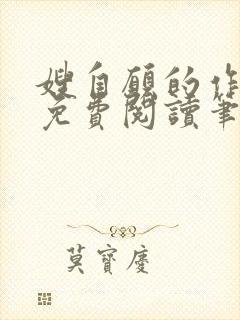 嫂自願的作
免費閱讀筆
莫寶慶